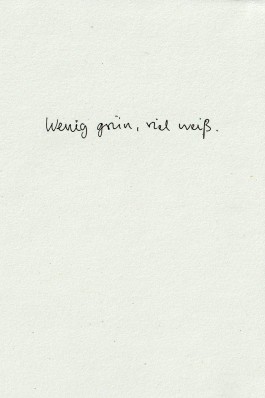 Wenig grün, viel weiß.